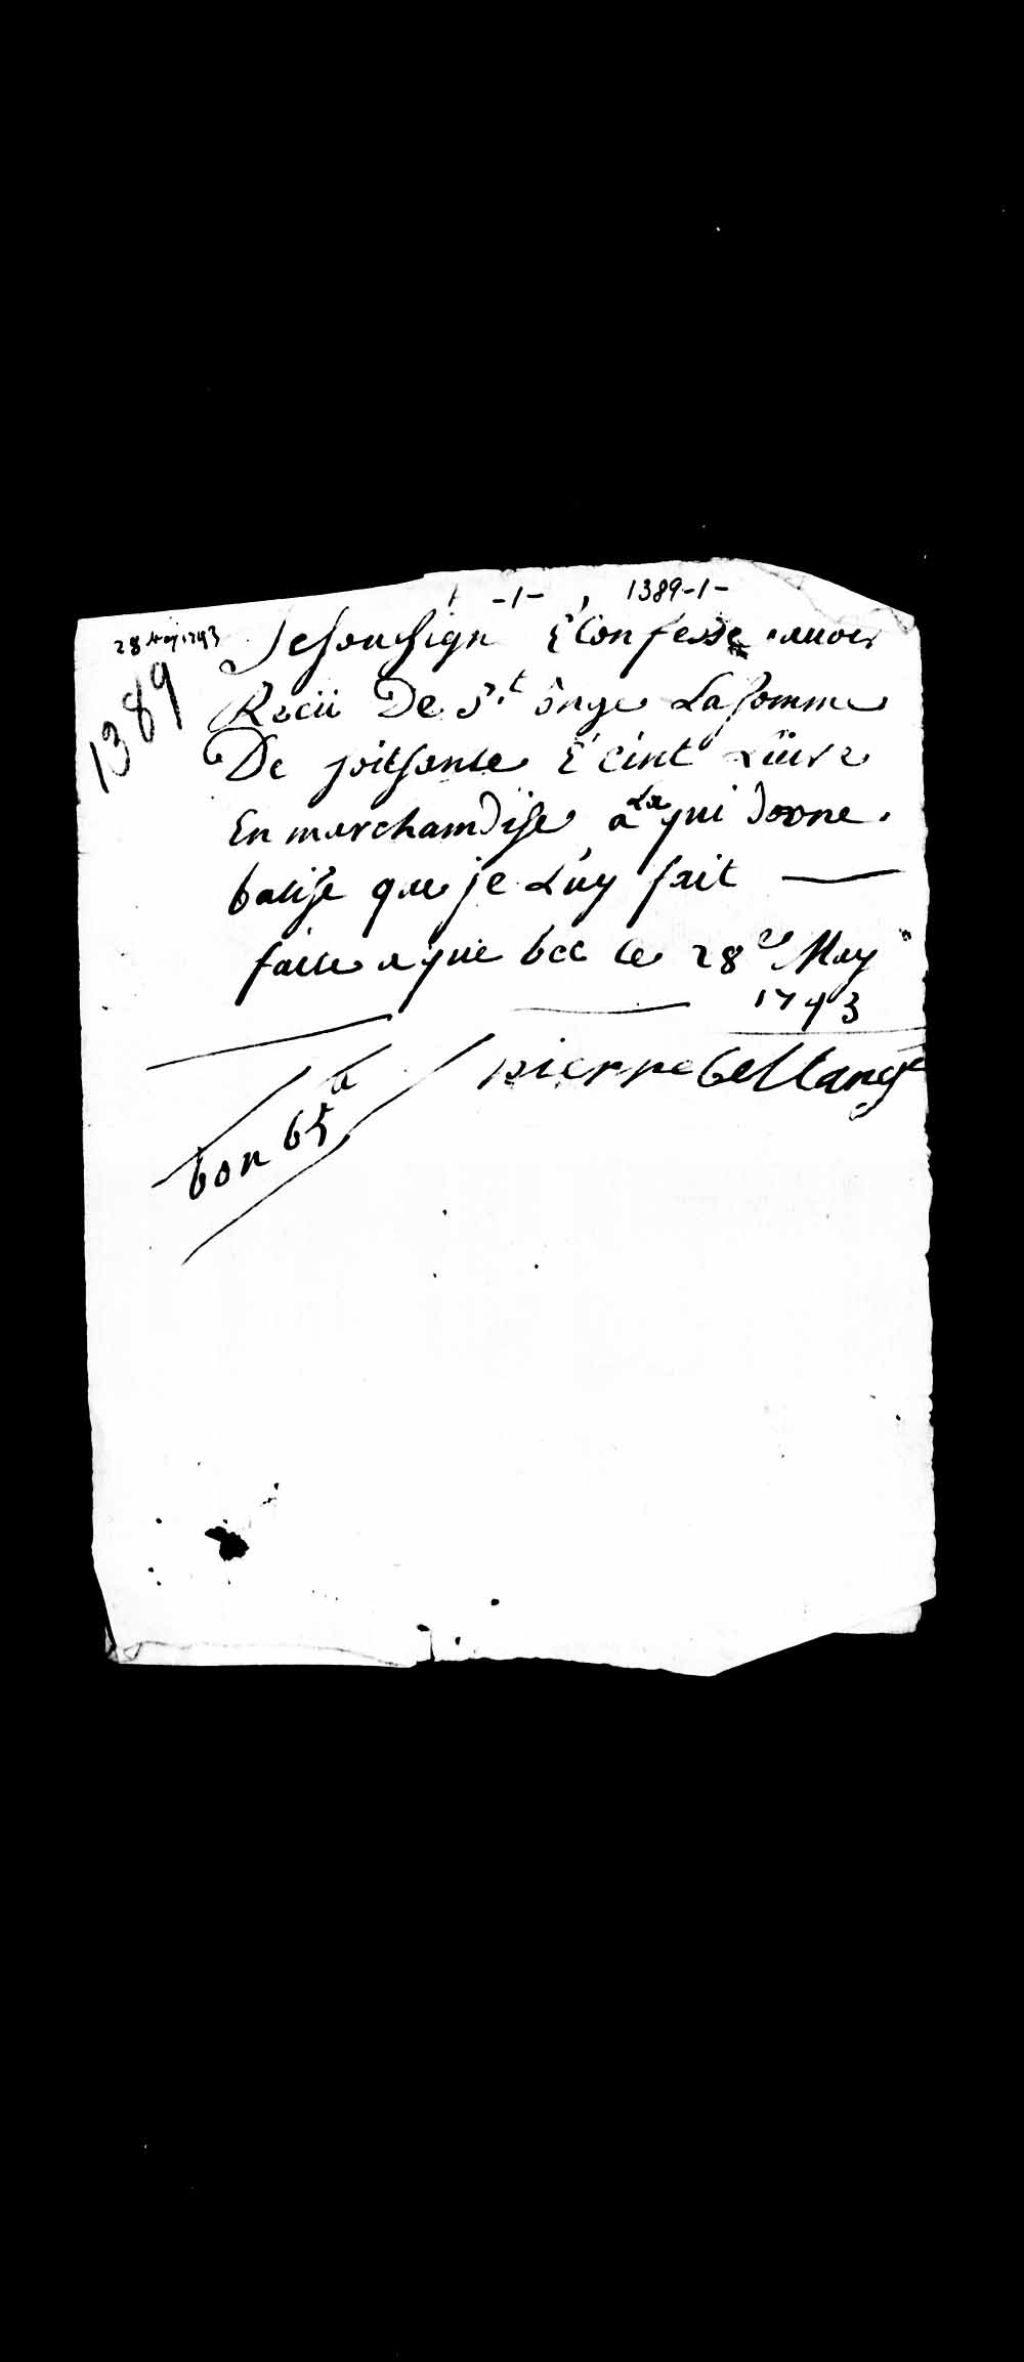 -1- 1389-1-
28 May 1793
1389
Je Soussign É Confesse auoir
Recü De St onge La Somme
De soitsante É cint Liüvre
En marchandise a La qui donne
balise que je Luy fait
faite a que bec le 28e May
1793
pierre bellange
bon 65